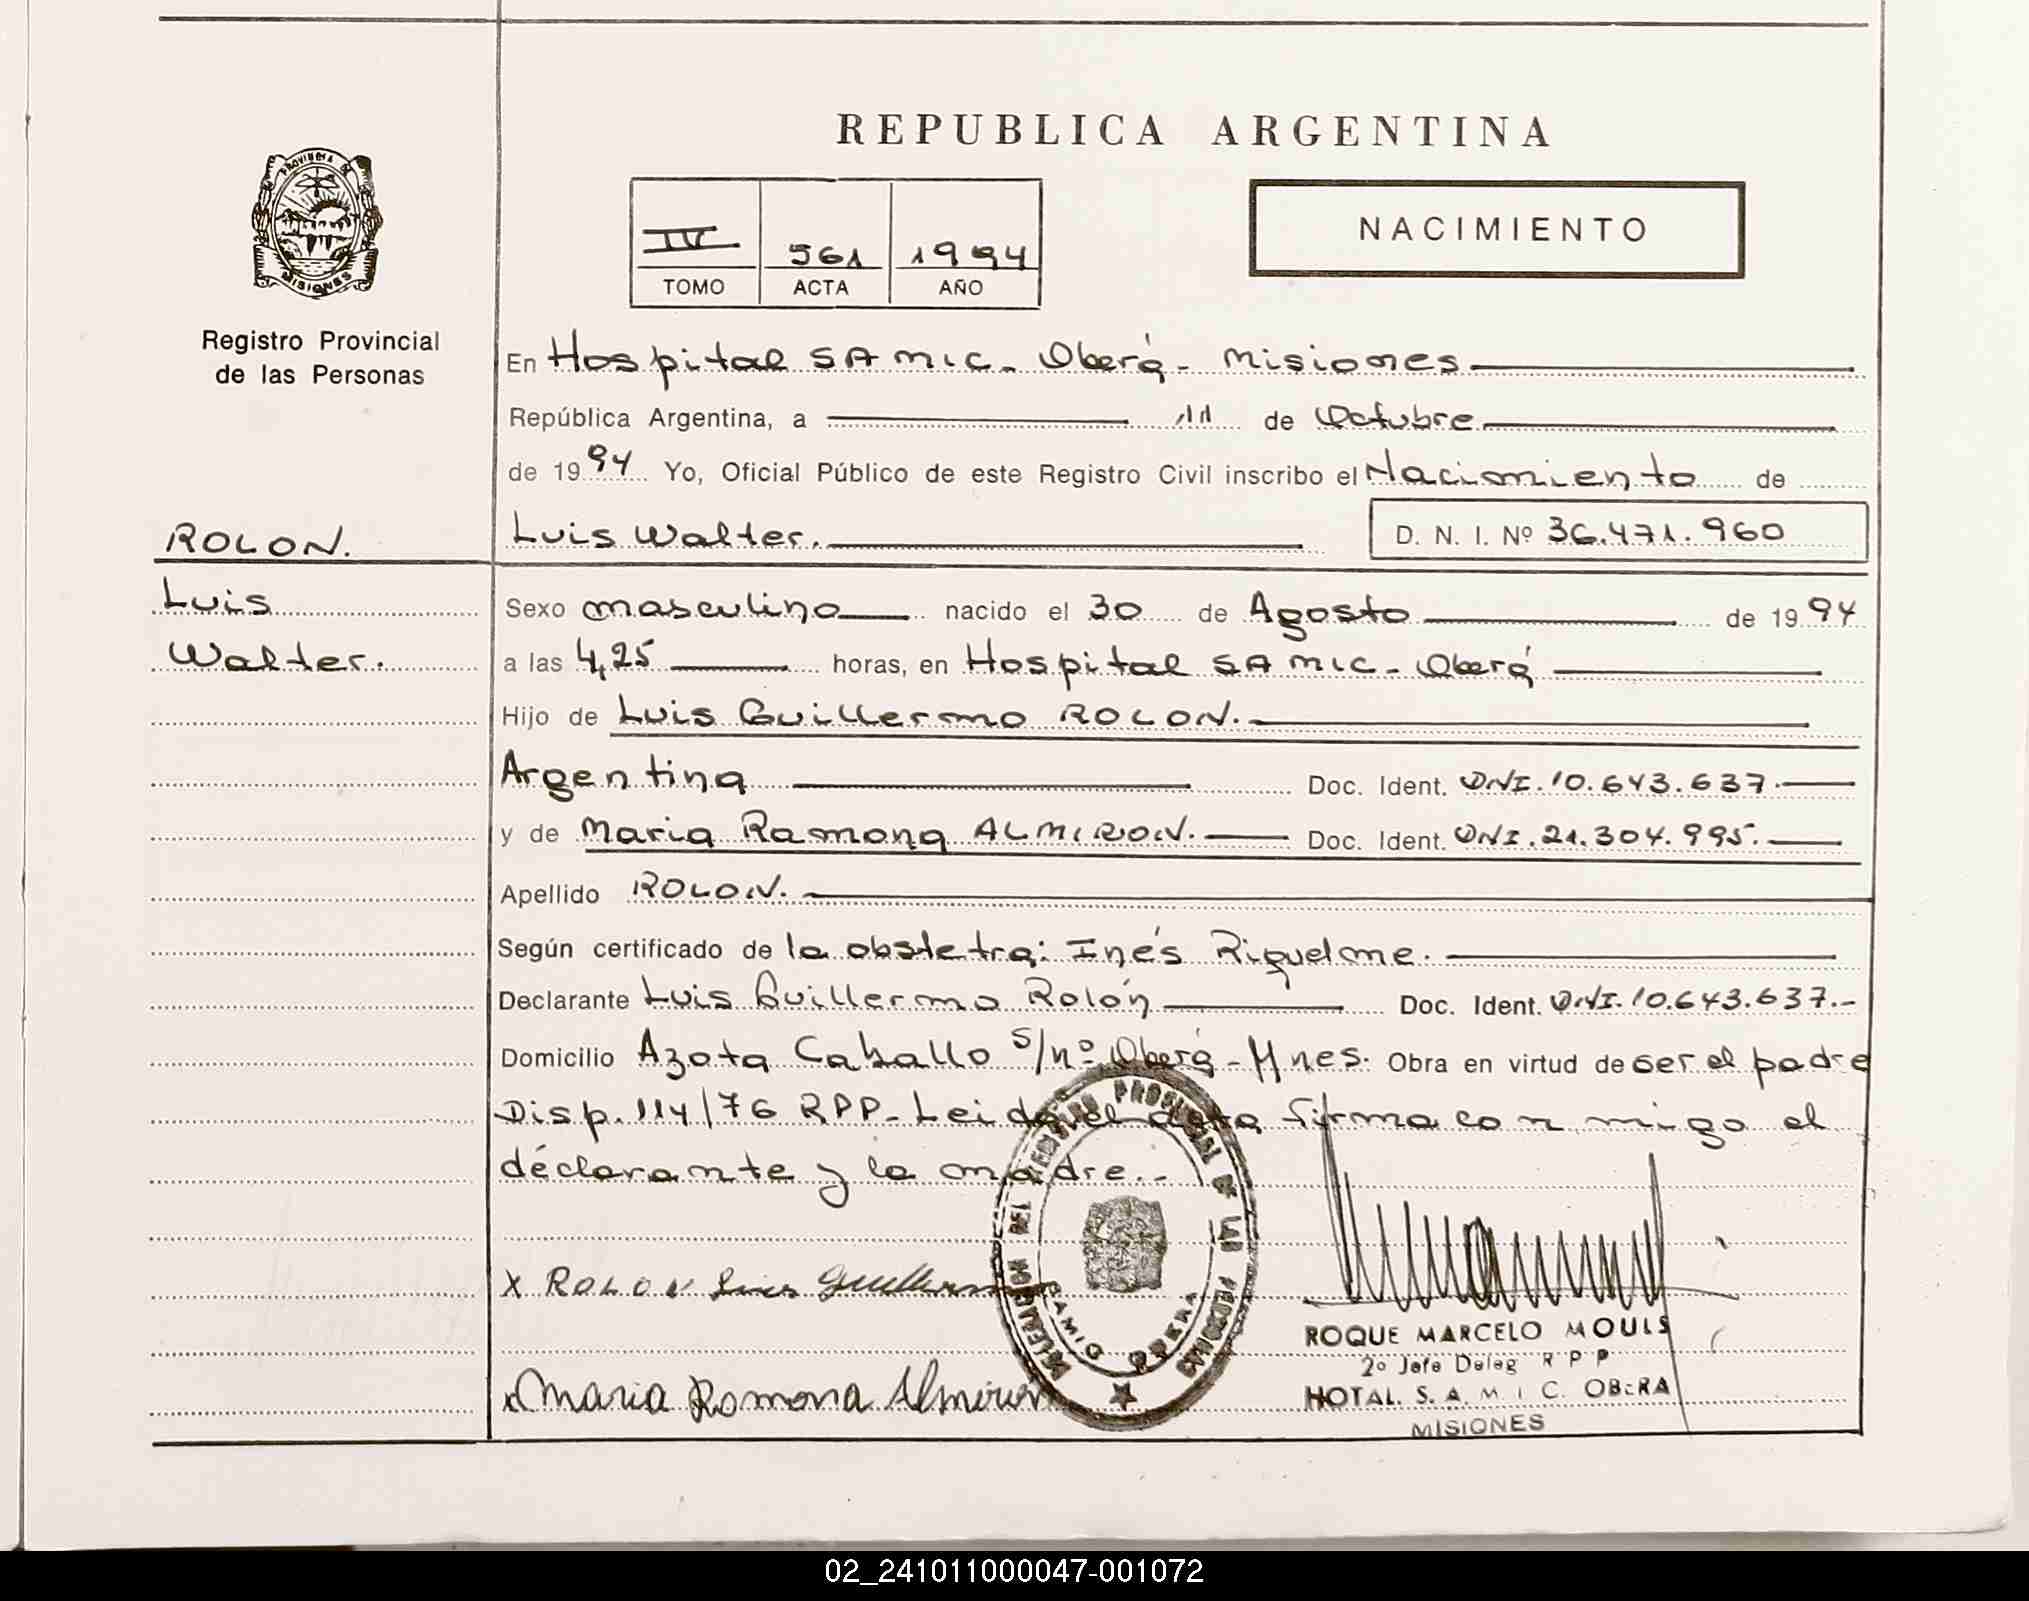 REPUBLICA ARGENTINA
PROVINCIA DE
MISIONES
Registro Provincial
de las Personas
IV 561 1994
TOMO ACTA AÑO
NACIMIENTO
En Hospital SAMIC. Oberá - Misiones
República Argentina, a 11 de Octubre
de 1994 Yo, Oficial Público de este Registro Civil inscribo el Nacimiento de
ROLON. Luis Walter. D. N. I. Nº 36.471.960
Luis Sexo masculino nacido el 30 de Agosto de 1994
Walter. a las 4,25 horas, en Hospital SAMIC - Oberá
Hijo de Luis Guillermo ROLON.
Argentina Doc. Ident. DNI. 10.643.637.
y de Maria Ramona ALMIRON. Doc. Ident. DNI. 21.304.995.
Apellido ROLON.
Según certificado de la obstetra: Inés Riquelme.
Declarante Luis Guillermo Rolón Doc. Ident. DNI. 10.643.637.-
Domicilio Azota Caballo s/nº Oberá - Mnes. Obra en virtud de ser el padre
Disp. 114/76 RPP - Leida el acta firma con migo el
declarante y la madre. -
X ROLON Luis Guillermo
x Maria Ramona Almiron
DEL REGISTRO PROVINCIAL DE LAS PERSONAS
SAMIC OBERA
ROQUE MARCELO MOULS
2º Jefe Deleg R P P
HOTAL. S. A. M I C. OBERA
MISIONES
02_241011000047-001072